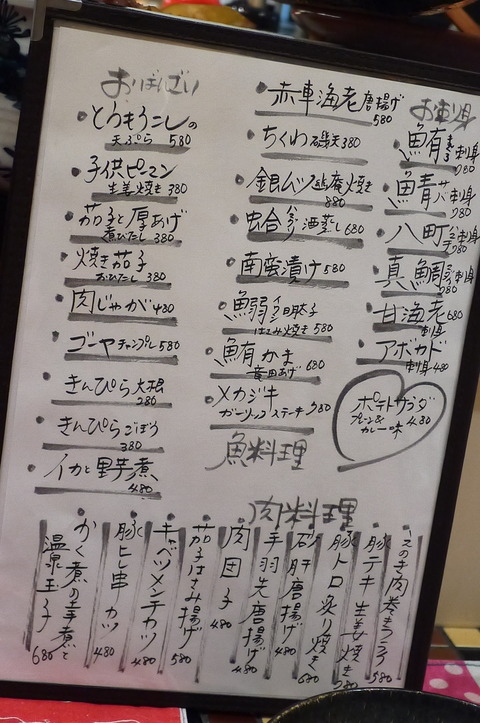 おばんざい
とうもろこしの
天ぷら 580
子供ピーマン
生姜焼き 380
茄子と厚あげ
煮びたし 380
焼き茄子
おひたし 380
肉じゃが 480
ゴーヤチャンプル 580
きんぴら大根
280
きんぴらごぼう
380
イカと里芋煮
480
赤車海老唐揚げ
580
ちくわ磯天 380
銀ムツ幽庵焼き
880
蛤 ハマグリ 酒蒸し 680
南蛮漬け 580
鰯 イワシ 明太子
はさみ焼き 580
鮪かま
竜田あげ 680
メカジキ
ガーリックステーキ 980
魚料理
お刺身
鮪 刺身
980
鯖 サバ 刺身
980
八町 刺身
980
真鯛 刺身
980
甘海老 680
刺身
アボカド
刺身 480
ポテトサラダ
プレーン&
カレー味 480
肉料理
えのき肉巻き 580
豚テキ 生姜焼き
豚トロ炙り焼き 680
砂肝唐揚げ 480
手羽先唐揚げ 480
肉団子 480
茄子はさみ揚げ 580
キャベツメンチカツ 480
豚ヒレ串カツ 480
かく煮の
温泉玉子 680